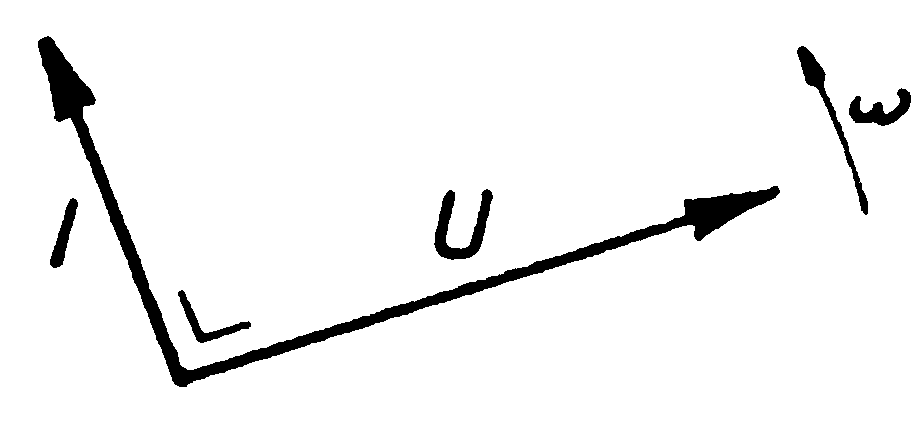 I
U
ω